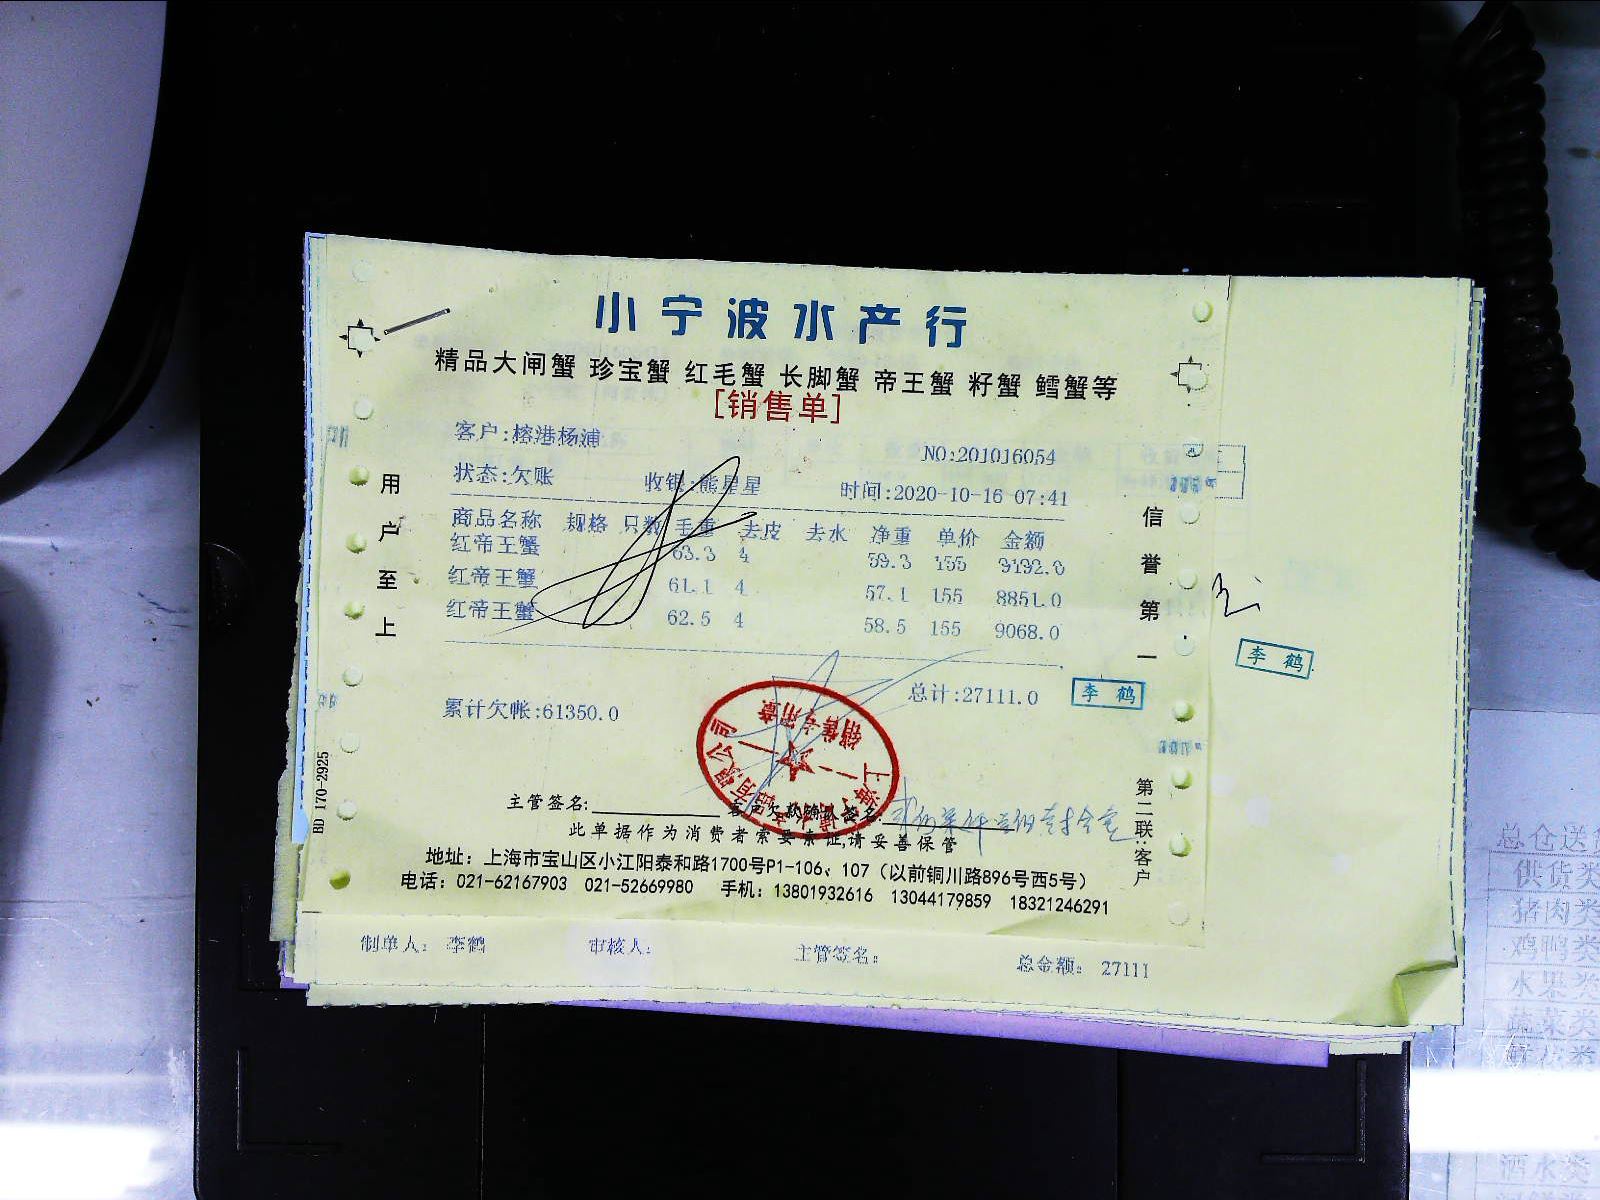 小宁波水产行
精品大闸蟹 珍宝蟹 红毛蟹 长脚蟹 帝王蟹 籽蟹 鳕蟹等
[销售单]
客户:榕港杨浦 NO:201016054
状态:欠账 收银:熊星星 时间:2020-10-16 07:41
商品名称 规格 只数 毛重 去皮 去水 净重 单价 金额
红帝王蟹 63.3 4 59.3 155 9192.0
红帝王蟹 61.1 4 57.1 155 8851.0
红帝王蟹 62.5 4 58.5 155 9068.0
用户至上
信誉第一
李鹤
累计欠帐:61350.0 总计:27111.0 李鹤
BD 170-2925
第二联:客户
销售专用章
主管签名: 客户欠款确认签名:
此单据作为消费者索要索证,请妥善保管
地址：上海市宝山区小江阳泰和路1700号P1-106、107（以前铜川路896号西5号）
电话：021-62167903 021-52669980 手机：13801932616 13044179859 18321246291
制单人： 李鹤 审核人： 主管签名： 总金额： 27111
总仓送货
供货类
猪肉类
鸡鸭类
水果类
蔬菜类
酒水类